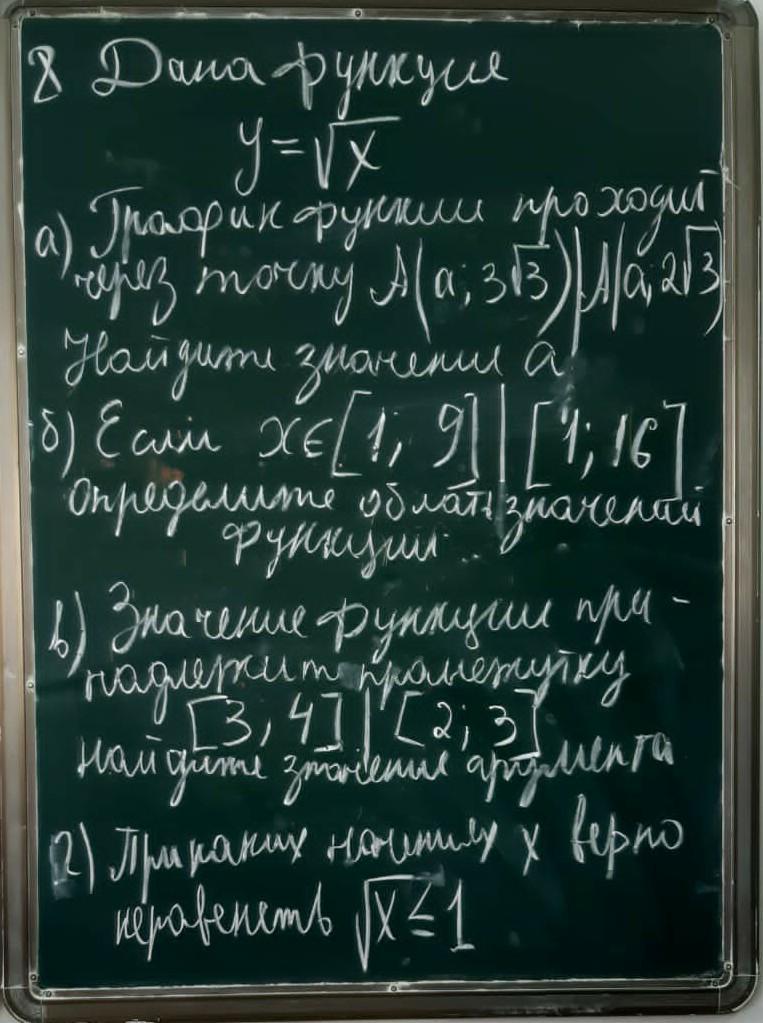 8 Дана функция
y=√x
а) График функции проходит
через точку A(a; 3√3)|A(a; 2√3)
Найдите значение a
б) Если x∈[1; 9] | [1; 16]
определите облать значений
функции
в) Значение функции при-
надлежит промежутку
[3, 4] | [2; 3]
найдите значение аргумента
г) При каких x верно
√x ≤ 1